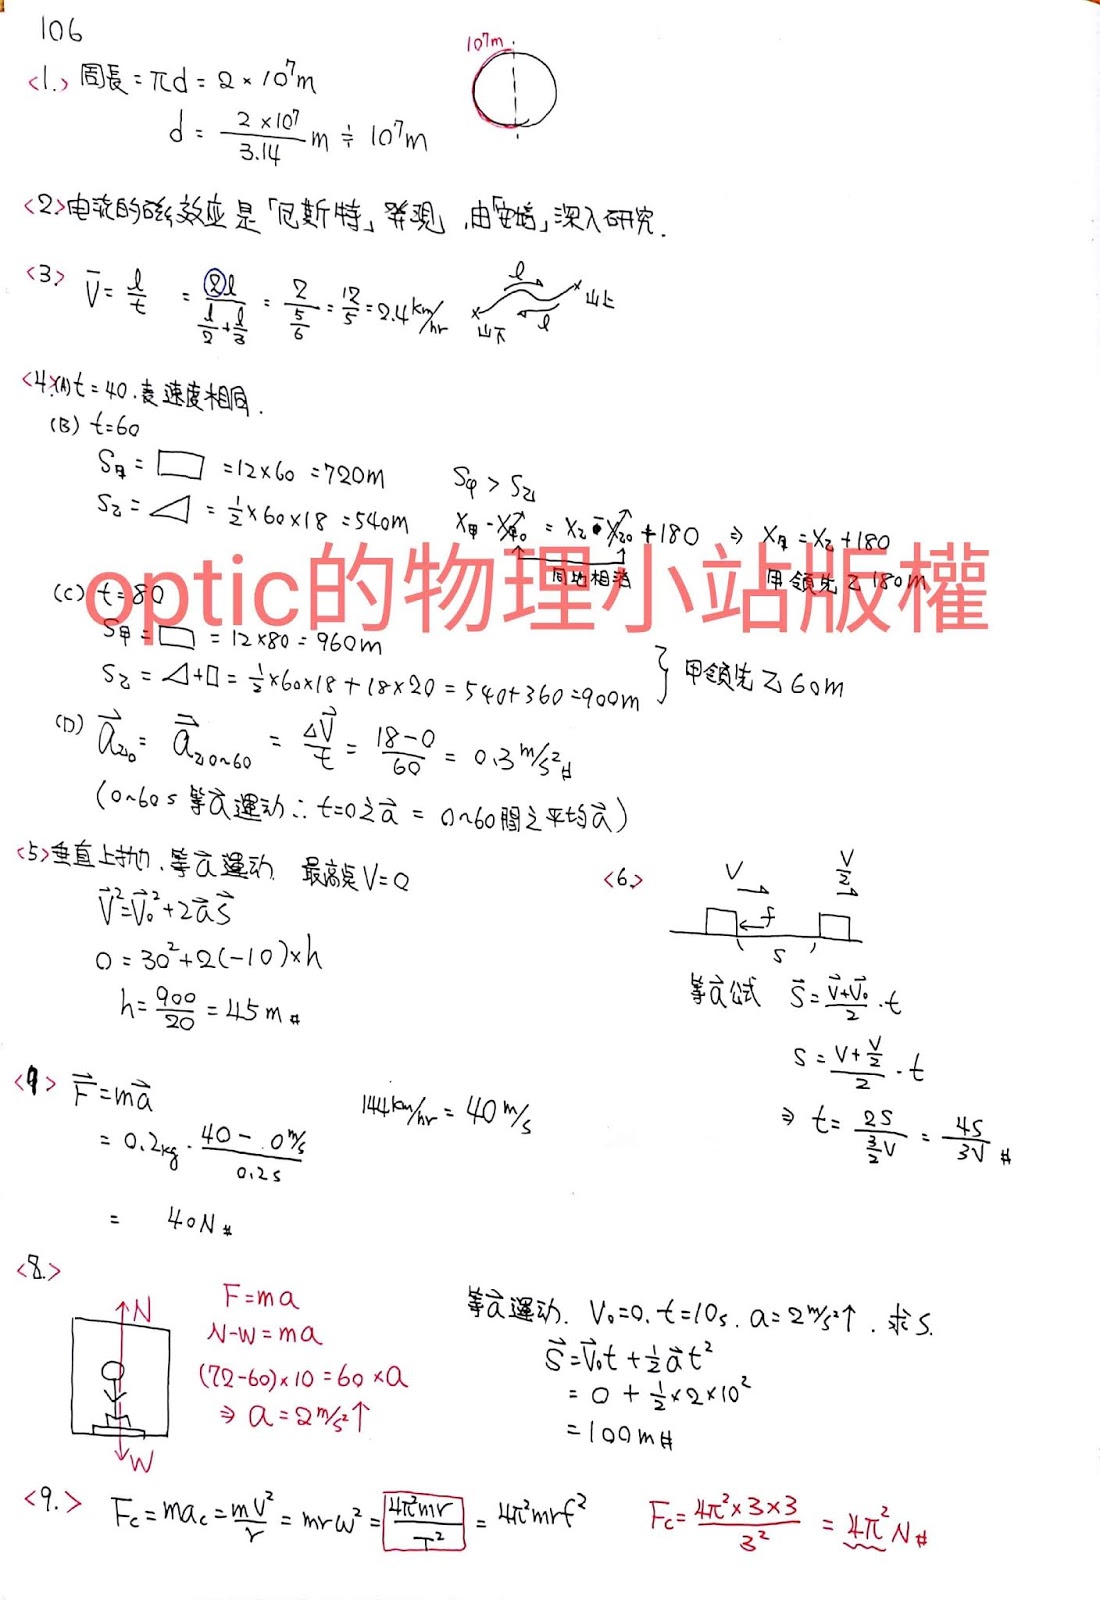 106
<1.> 周長 = πd = 2 × 10⁷m
10⁷m
d = 2 × 10⁷ / 3.14 m ≑ 10⁷m
<2> 电流的磁效应是「厄斯特」發現，由「安培」深入研究.
<3> V̄ = l/t = 2l / (l/2 + l/3) = 2 / (5/6) = 12/5 = 2.4 km/hr
l 山上
山下 l
<4> (A) t = 40. 表速度相同.
(B) t = 60
S甲 = ▭ = 12×60 = 720m S甲 > S乙
S乙 = ◿ = 1/2 × 60 × 18 = 540m X甲 - X甲0 = X乙 - X乙0 + 180 ⇒ X甲 = X乙 + 180
同地相消 甲領先乙 180m
optic的物理小站版權
(C) t = 80
S甲 = ▭ = 12×80 = 960m
S乙 = ◿+▯ = 1/2 × 60 × 18 + 18 × 20 = 540 + 360 = 900m } 甲領先乙 60m
(D) a⃗乙0 = a⃗乙0~60 = ΔV⃗/t = (18-0)/60 = 0.3 m/s² #
(0~60s 等a⃗運动 ∴ t=0之a⃗ = 0~60間之平均a⃗)
<5> 垂直上拋，等a⃗運动. 最高點V=0
V⃗² = V⃗₀² + 2a⃗S⃗
0 = 30² + 2(-10)×h
h = 900/20 = 45m #
<6.> V V/2
f
S
等a⃗公式 S⃗ = (V⃗+V⃗₀)/2 · t
S = (V + V/2)/2 · t
⇒ t = 2S / (3/2 V) = 4S/3V #
F⃗ = ma⃗ 144 km/hr = 40 m/s
= 0.2kg · (40 - 0 m/s) / 0.2s
= 40N #
<8.>
N
W
F = ma
N-W = ma
(72-60)×10 = 60×a
⇒ a = 2 m/s² ↑
等a⃗運动. V₀=0. t=10s. a=2 m/s² ↑. 求S.
S⃗ = V⃗₀t + 1/2 a⃗t²
= 0 + 1/2 × 2 × 10²
= 100m #
<9.> Fc = mac = mV²/r = mrω² = 4π²mr/T² = 4π²mrf² Fc = 4π²×3×3 / 3² = 4π² N #